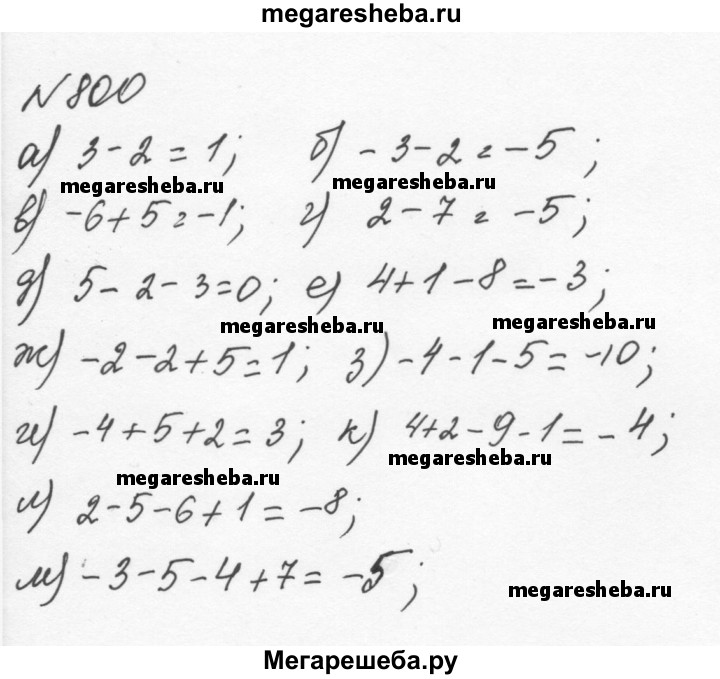 megaresheba.ru
№800
а) 3-2=1; б) -3-2=-5;
megaresheba.ru megaresheba.ru
в) -6+5=-1; г) 2-7=-5;
д) 5-2-3=0; е) 4+1-8=-3;
megaresheba.ru megaresheba.ru
ж) -2-2+5=1; з) -4-1-5=-10;
и) -4+5+2=3; к) 4+2-9-1=-4;
megaresheba.ru megaresheba.ru
л) 2-5-6+1=-8;
м) -3-5-4+7=-5;
megaresheba.ru
Мегарешеба.ру